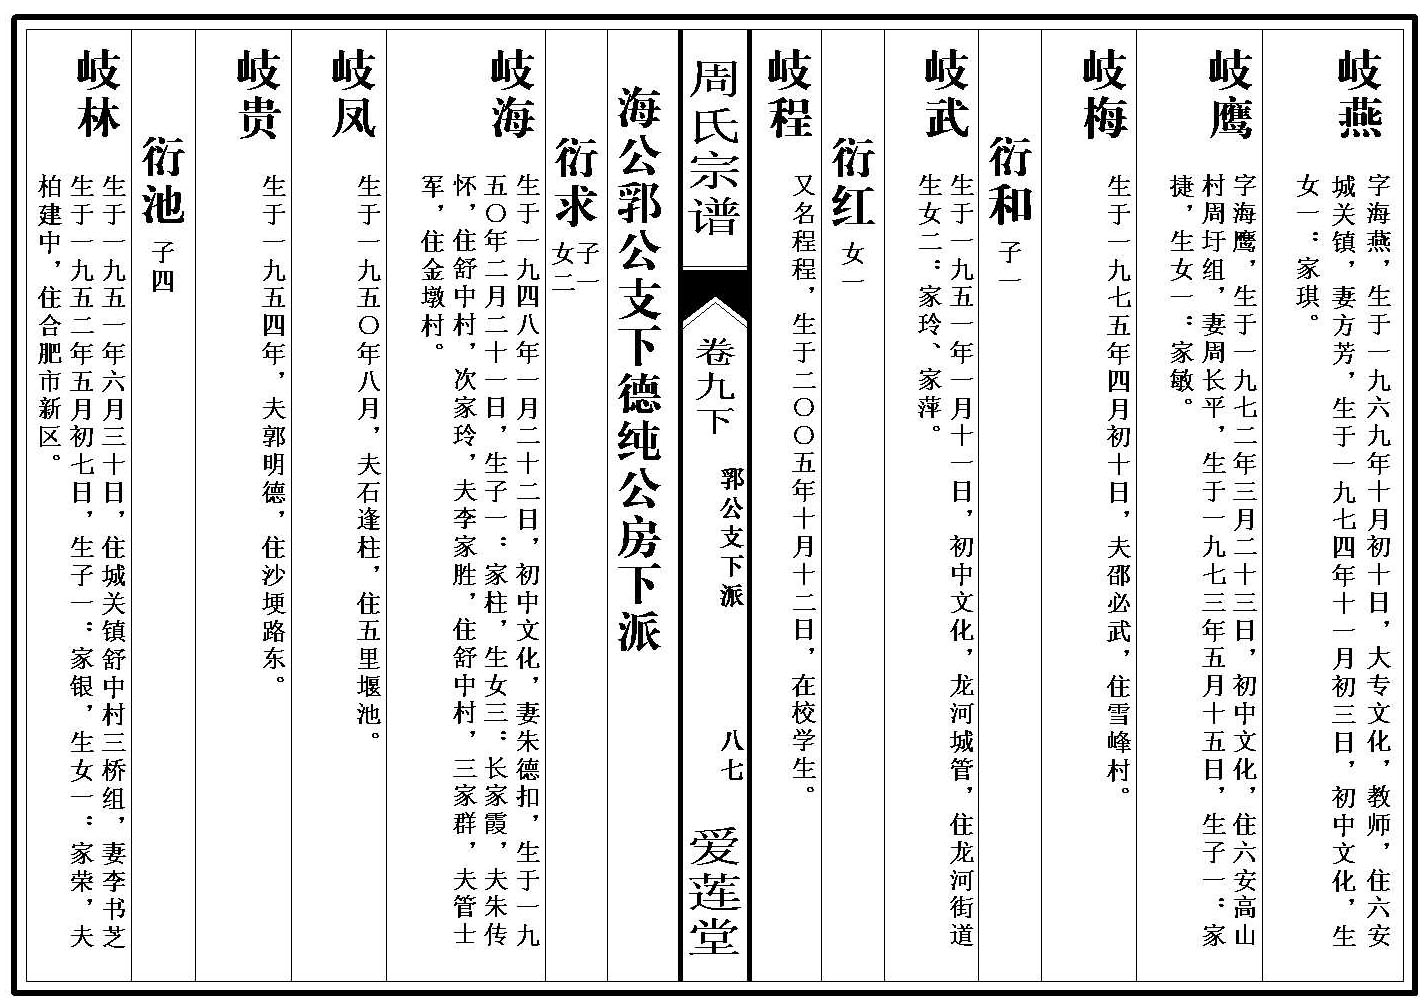 岐燕
字海燕，生于一九六九年十月初十日，大专文化，教师，住六安
城关镇，妻方芳，生于一九七四年十一月初三日，初中文化，生
女一：家琪。
岐鹰
字海鹰，生于一九七二年三月二十三日，初中文化，住六安高山
村周圩组，妻周长平，生于一九七三年五月十五日，生子一：家
捷，生女一：家敏。
岐梅
生于一九七五年四月初十日，夫邵必武，住雪峰村。
衍和
子一
岐武
生于一九五一年一月十一日，初中文化，龙河城管，住龙河街道
生女二：家玲、家萍。
衍红
女一
岐程
又名程程，生于二〇〇五年十月十二日，在校学生。
周氏宗谱
卷九下
郛公支下派
八七
爱莲堂
海公郛公支下德纯公房下派
衍求
子一
女二
岐海
生于一九四八年一月二十二日，初中文化，妻朱德扣，生于一九
五〇年二月二十一日，生子一：家柱，生女三：长家霞，夫朱传
怀，住舒中村，次家玲，夫李家胜，住舒中村，三家群，夫管士
军，住金墩村。
岐凤
生于一九五〇年八月，夫石逢柱，住五里堰池。
岐贵
生于一九五四年，夫郭明德，住沙埂路东。
衍池
子四
岐林
生于一九五一年六月三十日，住城关镇舒中村三桥组，妻李书芝
生于一九五二年五月初七日，生子一：家银，生女一：家荣，夫
柏建中，住合肥市新区。